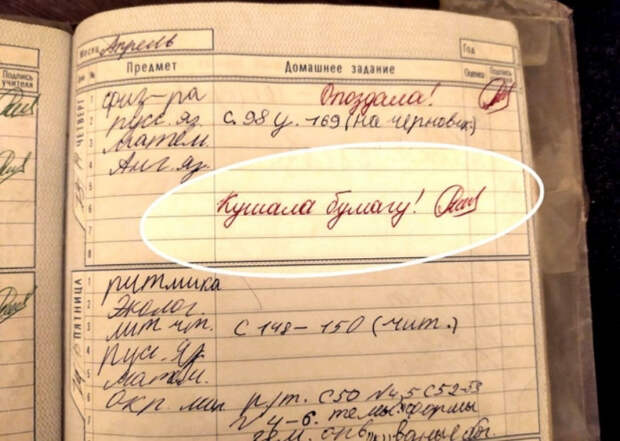 Месяц Апрель Год
Подпись учителя № Предмет Домашнее задание Оценка Подпись
ЧЕТВЕРГ
1 физ-ра Опоздала!
2 русс. яз. с. 98 у. 169 (на чернов.)
3 матем.
4 Анг. яз.
5
6 Кушала бумагу!
7
8
ПЯТНИЦА
1 ритмика
2 Эколог.
3 лит. чт. с 148-150 (чит.)
4 русс. яз.
5 матем.
6 окр. мир р/т. с 50 №4,5 с 52-53
7 4-6. темы: формы